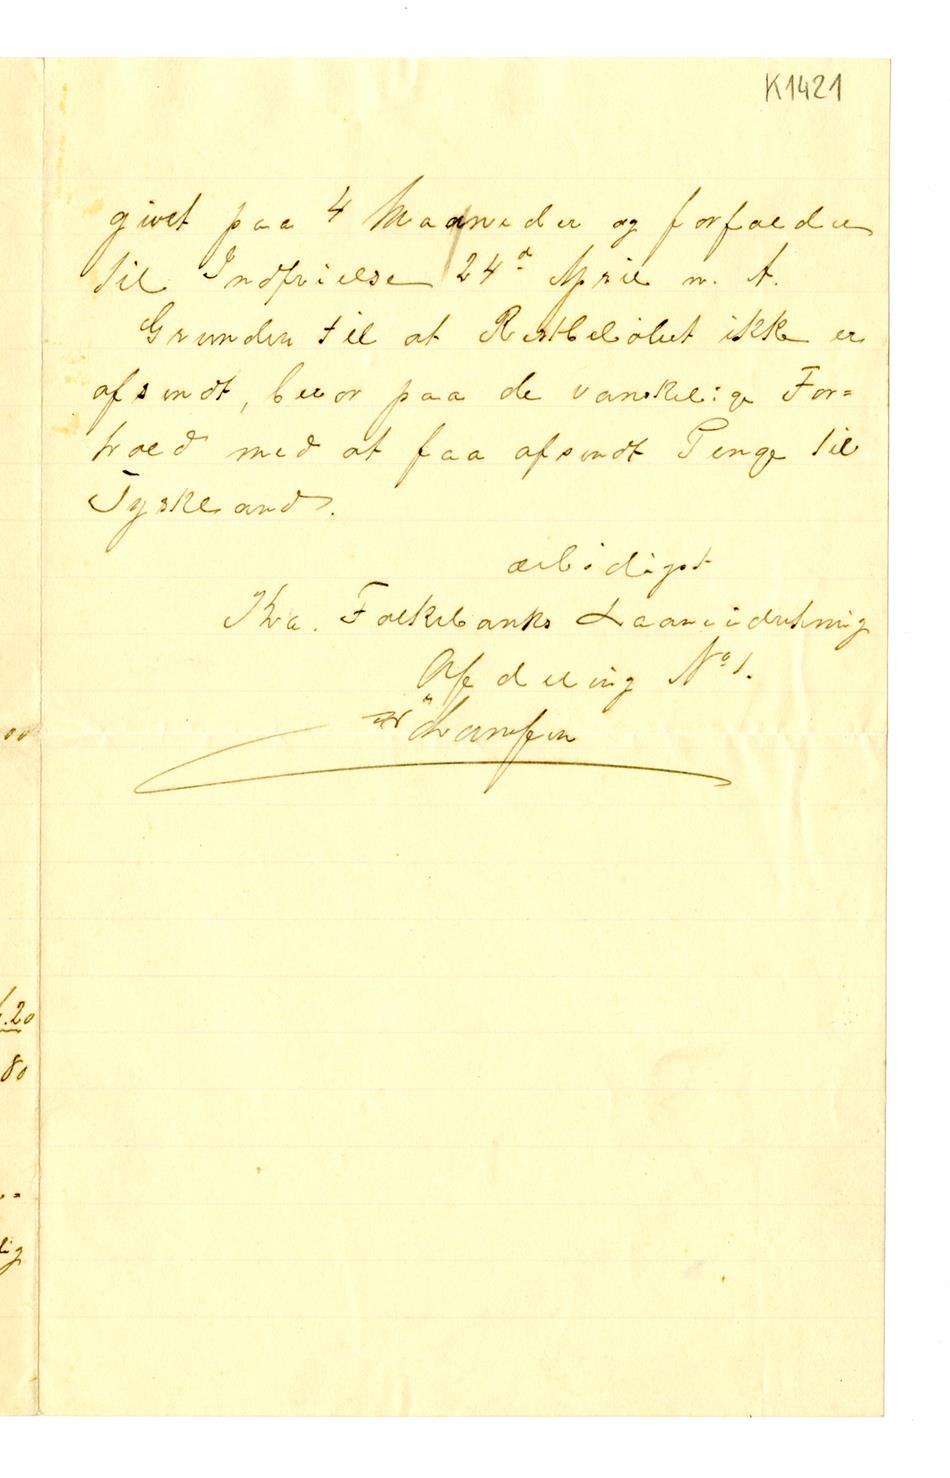 K1421
givet paa 4 Maaneder og forfalder
til Indfrielse 24d April n. A.
Grunden til at Restbeløbet ikke er
afsendt, beror paa de vanskelige For=
hold med at faa afsendt Penge til
Tyskland.
ærbødigst
Folkebanks Laaneindretning
Afdeling No 1.
00
.20
80
lig